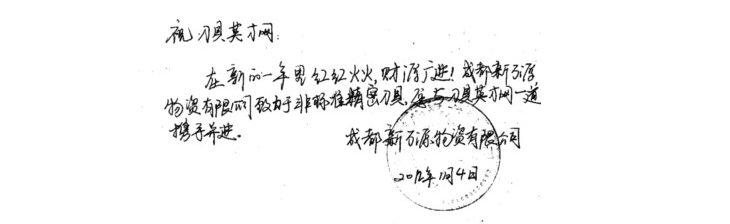 祝刀具英才网:
在新的一年里红红火火,财源广进!成都新万源
物资有限公司致力于非标准精密刀具,愿与刀具英才网一道
携手并进。
成都新万源物资有限公司
2012年1月4日